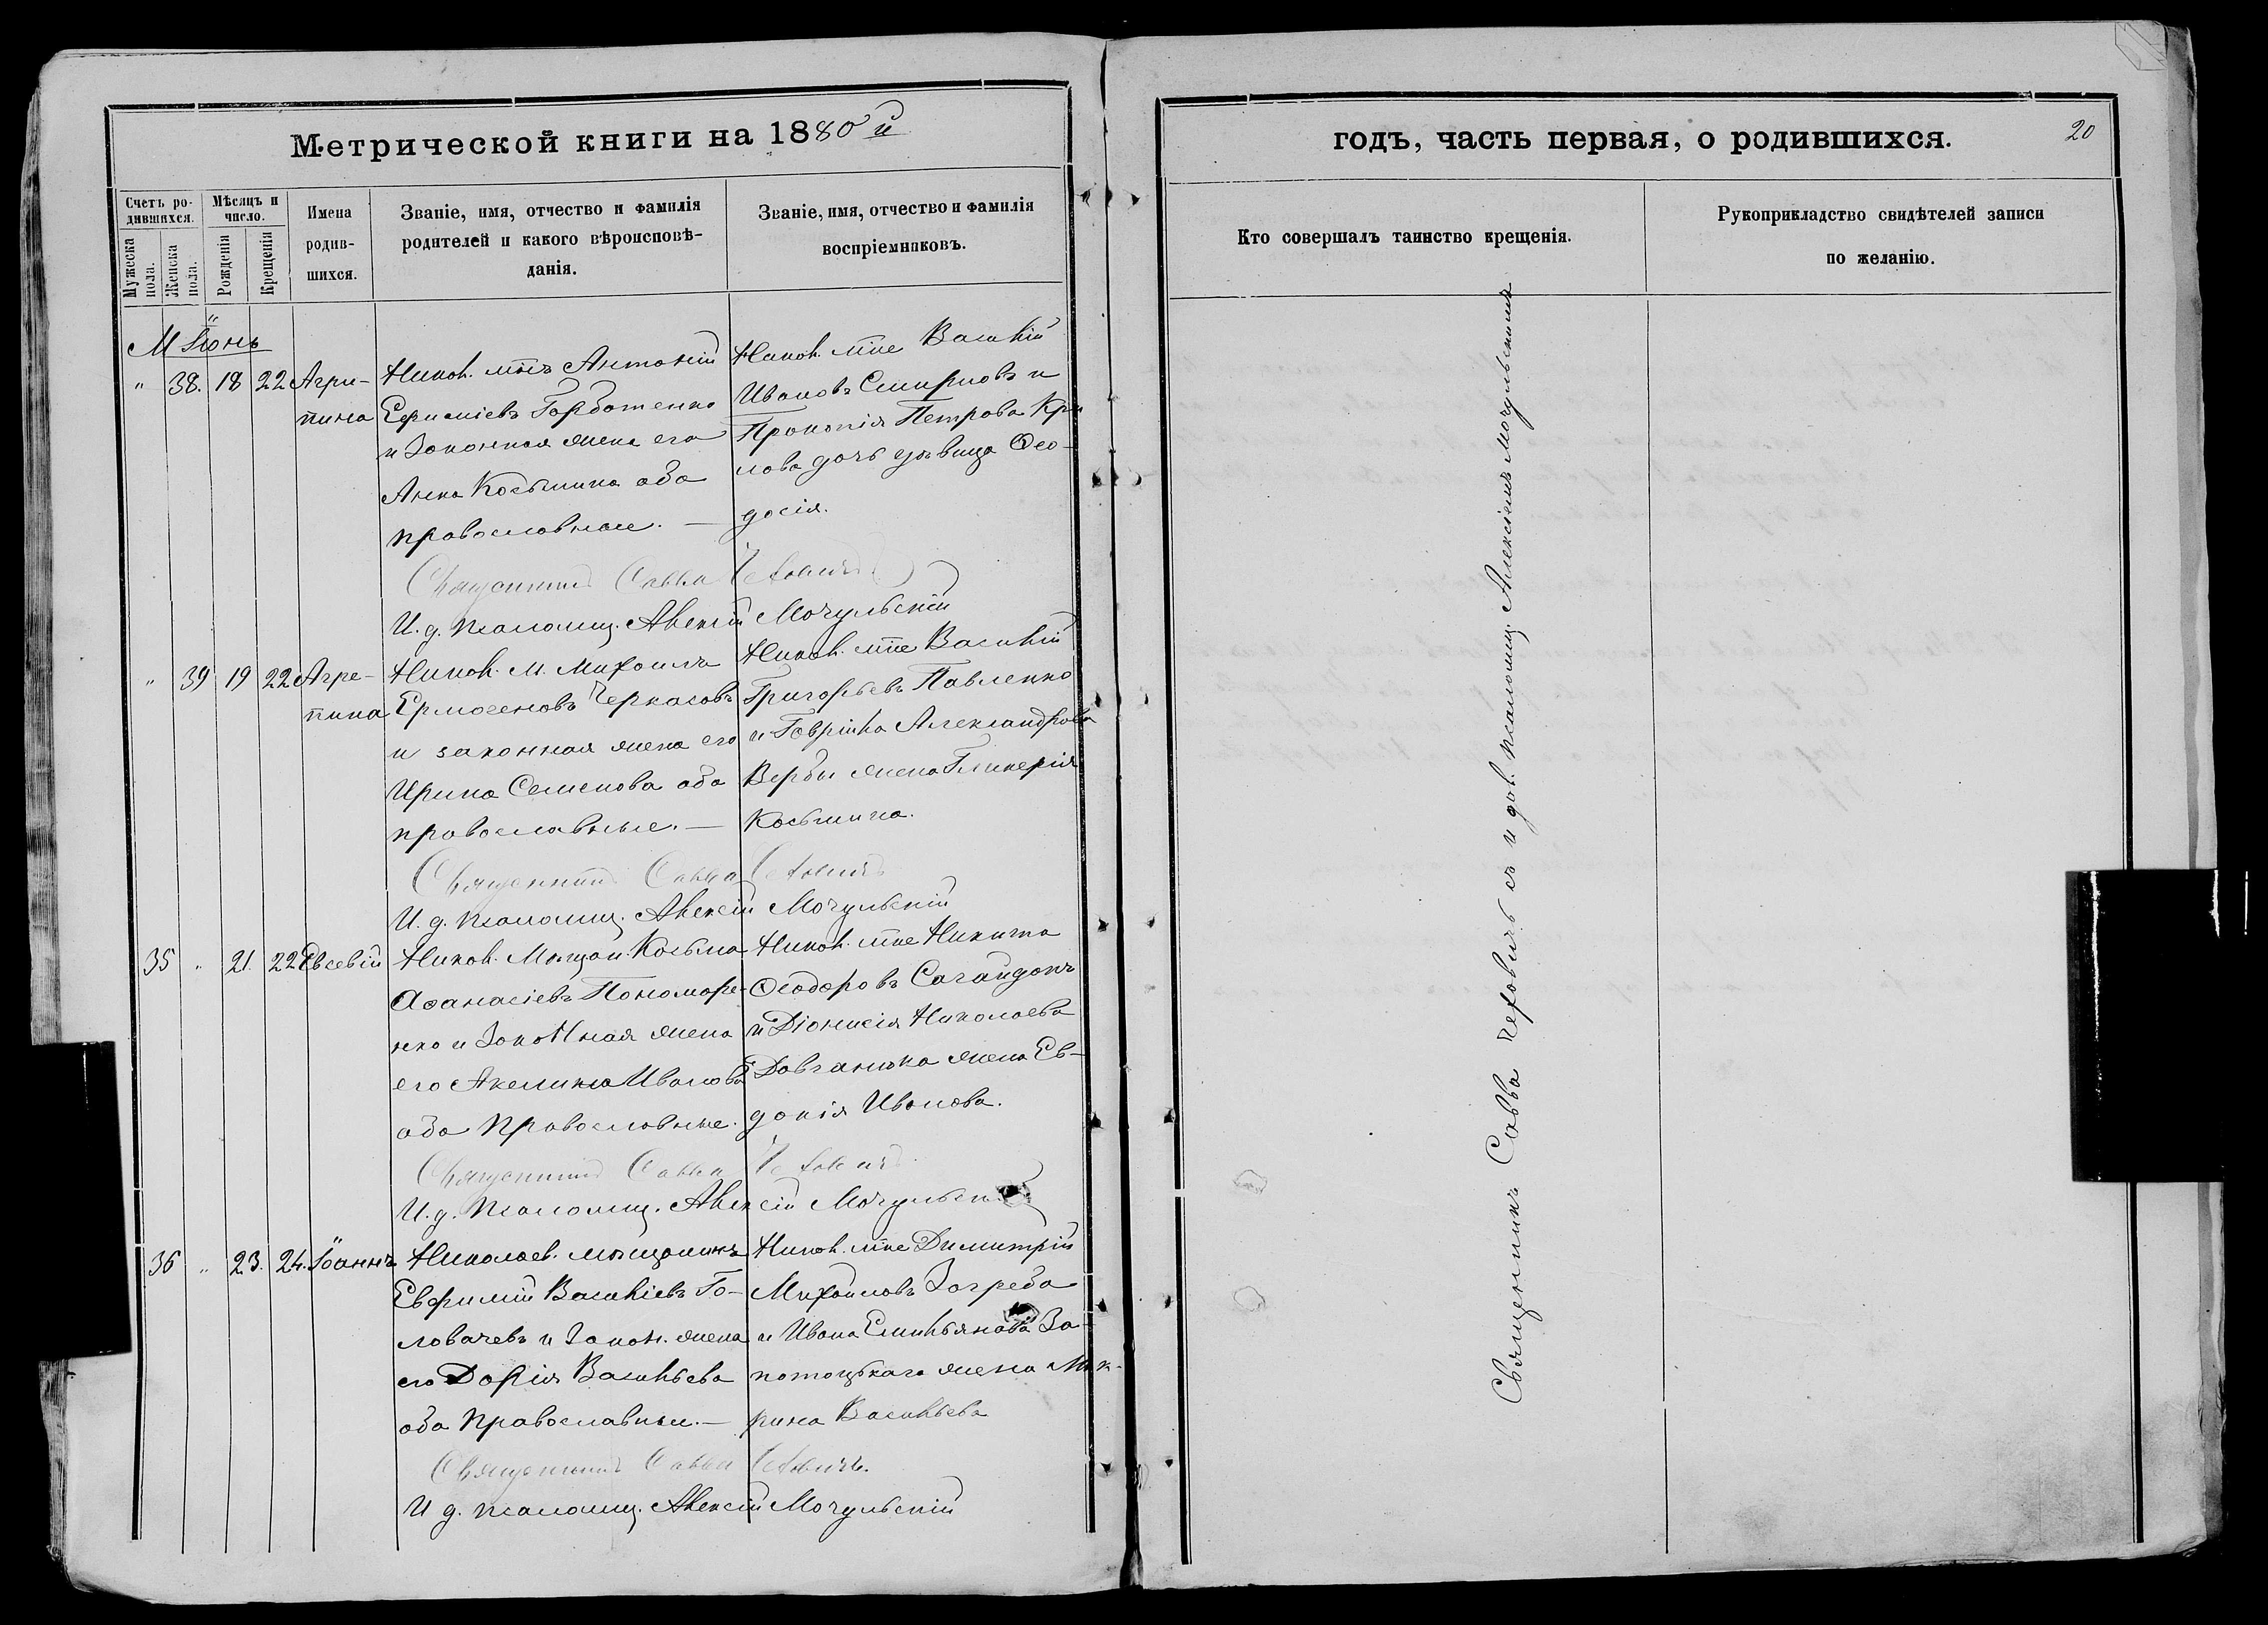 Метрической книги на 1880й
Счетъ родившихся.
Мѣсяцъ и число.
Мужеска пола.
Женска пола.
Рожденія
Крещенія
Имена родив-
шихся.
Званіе, имя, отчество и фамилія
родителей и какого вѣроисповѣ-
данія.
Званіе, имя, отчество и фамилія
воспріемниковъ.
М Іюнь
" 38. 18 22 Агри-
пина
Никол. мѣщ. Антоній
Ефиміевъ Горботенко
и Законная жена его
Анна Косьмина оба
православные. —
Никол. мѣщ. Василій
Ивановъ Смирновъ и
Прокопія Петрова Кри
лова дочь дѣвица Ѳео-
досія.
Священникъ Савва Чехович
И. д. псаломщ. Алексій Мочульскій
" 39 19 22 Агре-
пина
Никол. м. Михаилъ
Ермогеновъ Черкасовъ
и законная жена его
Ирина Семенова оба
православные. —
Никол. мѣщ. Василій
Григорьевъ Павленко
и Гавріила Александрова
Вербы жена Гликерія
Косьмина.
Священникъ Савва Чехович
И. д. псаломщ. Алексій Мочульскій
35 " 21. 22 Евсевій
Никол. Мѣщан. Косьма
Аѳанасіевъ Пономаре-
нко и Законная жена
его Акелина Иванова
оба Православные.
Никол. мѣщ. Никита
Ѳеодоровъ Сагайдакъ
и Діонисія Николаева
Довганюка жена Ев-
докія Иванова.
Священникъ Савва Чехович
И. д. Псаломщ. Алексій Мочульскій
36 " 23. 24. Іоаннъ
Николаев. мѣщанинъ
Евфимій Василіевъ Го-
ловачевъ и Закон. жена
его Дарія Васильева
оба Православные. —
Никол. мѣщ. Димитрій
Михайловъ Загреба
и Ивана Емильянова За-
потоцькаго жена Мак-
рина Васильева
Священникъ Савва Чехович.
И д. псаломщ. Алексій Мочульскій
годъ, часть первая, о родившихся.
20
Кто совершалъ таинство крещенія.
Рукоприкладство свидѣтелей записи
по желанію.
Священникъ Савва Чеховичъ съ и дол. псаломщ. Алексіемъ Мочульскимъ